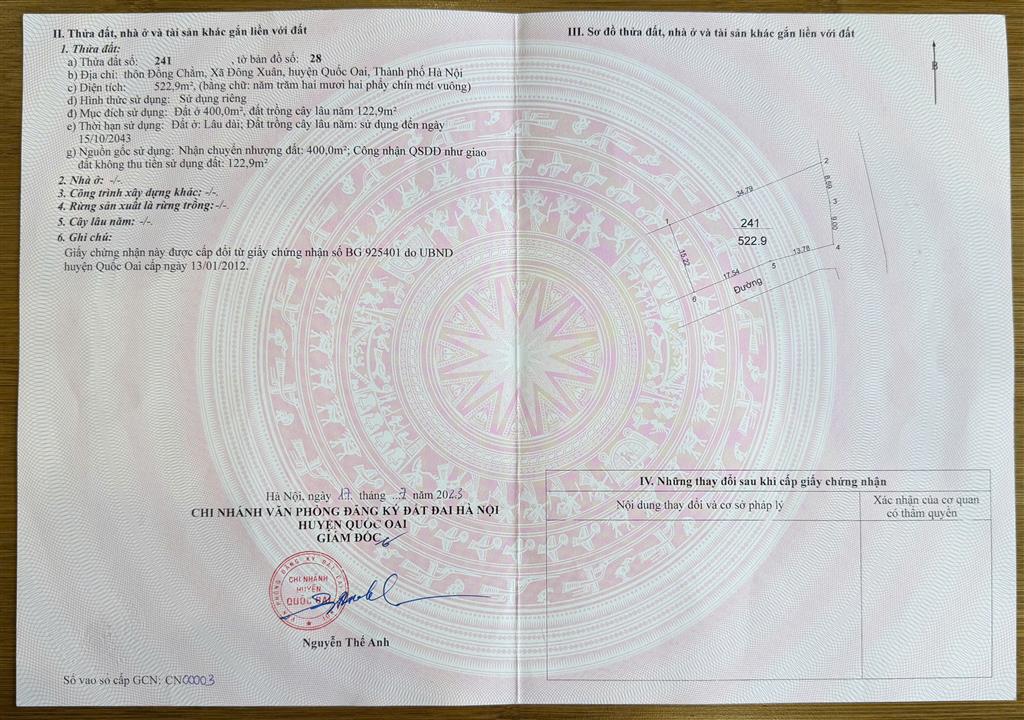 II. Thửa đất, nhà ở và tài sản khác gắn liền với đất
1. Thửa đất:
a) Thửa đất số: 241 , tờ bản đồ số: 28
b) Địa chỉ: thôn Đồng Chằm, Xã Đông Xuân, huyện Quốc Oai, Thành phố Hà Nội
c) Diện tích: 522,9m², (bằng chữ: năm trăm hai mươi hai phẩy chín mét vuông)
d) Hình thức sử dụng: Sử dụng riêng
đ) Mục đích sử dụng: Đất ở 400,0m², đất trồng cây lâu năm 122,9m²
e) Thời hạn sử dụng: Đất ở: Lâu dài; Đất trồng cây lâu năm: sử dụng đến ngày
15/10/2043
g) Nguồn gốc sử dụng: Nhận chuyển nhượng đất: 400,0m²; Công nhận QSDĐ như giao
đất không thu tiền sử dụng đất: 122,9m²
2. Nhà ở: -/-.
3. Công trình xây dựng khác: -/-.
4. Rừng sản xuất là rừng trồng: -/-.
5. Cây lâu năm: -/-.
6. Ghi chú:
Giấy chứng nhận này được cấp đổi từ giấy chứng nhận số BG 925401 do UBND
huyện Quốc Oai cấp ngày 13/01/2012.
Hà Nội, ngày 17 tháng ..7 năm 2023
CHI NHÁNH VĂN PHÒNG ĐĂNG KÝ ĐẤT ĐAI HÀ NỘI
HUYỆN QUỐC OAI
GIÁM ĐỐC
CHI NHÁNH
HUYỆN
QUỐC OAI
Nguyễn Thế Anh
Số vào sổ cấp GCN: CN00003
III. Sơ đồ thửa đất, nhà ở và tài sản khác gắn liền với đất
B
2
34.79
8.69
3
1
241
9.00
522.9
15.22
13.78
4
17.54
5
6
Đường
IV. Những thay đổi sau khi cấp giấy chứng nhận
Nội dung thay đổi và cơ sở pháp lý
Xác nhận của cơ quan
có thẩm quyền